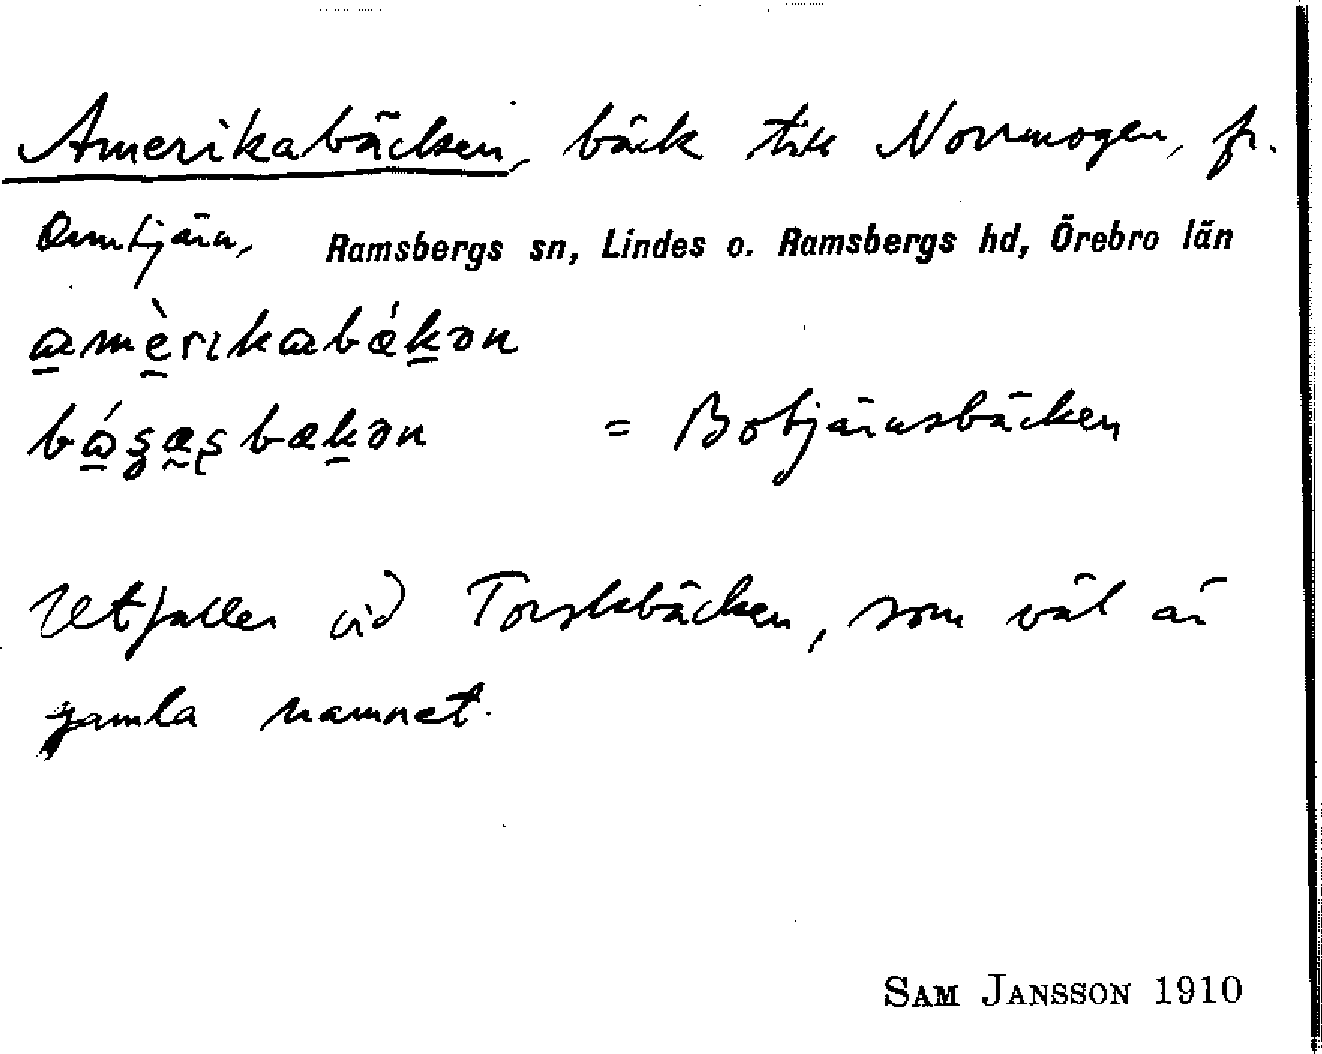 Amerikabäcken, bäck till Norrmogen, fr.
Ormtjärn, Ramsbergs sn, Lindes o. Ramsbergs hd, Örebro län
amèrikabǽkən
= Botjärnsbäcken
Utfaller vid Torskbäcken, som väl är
gamla namnet.
SAM JANSSON 1910